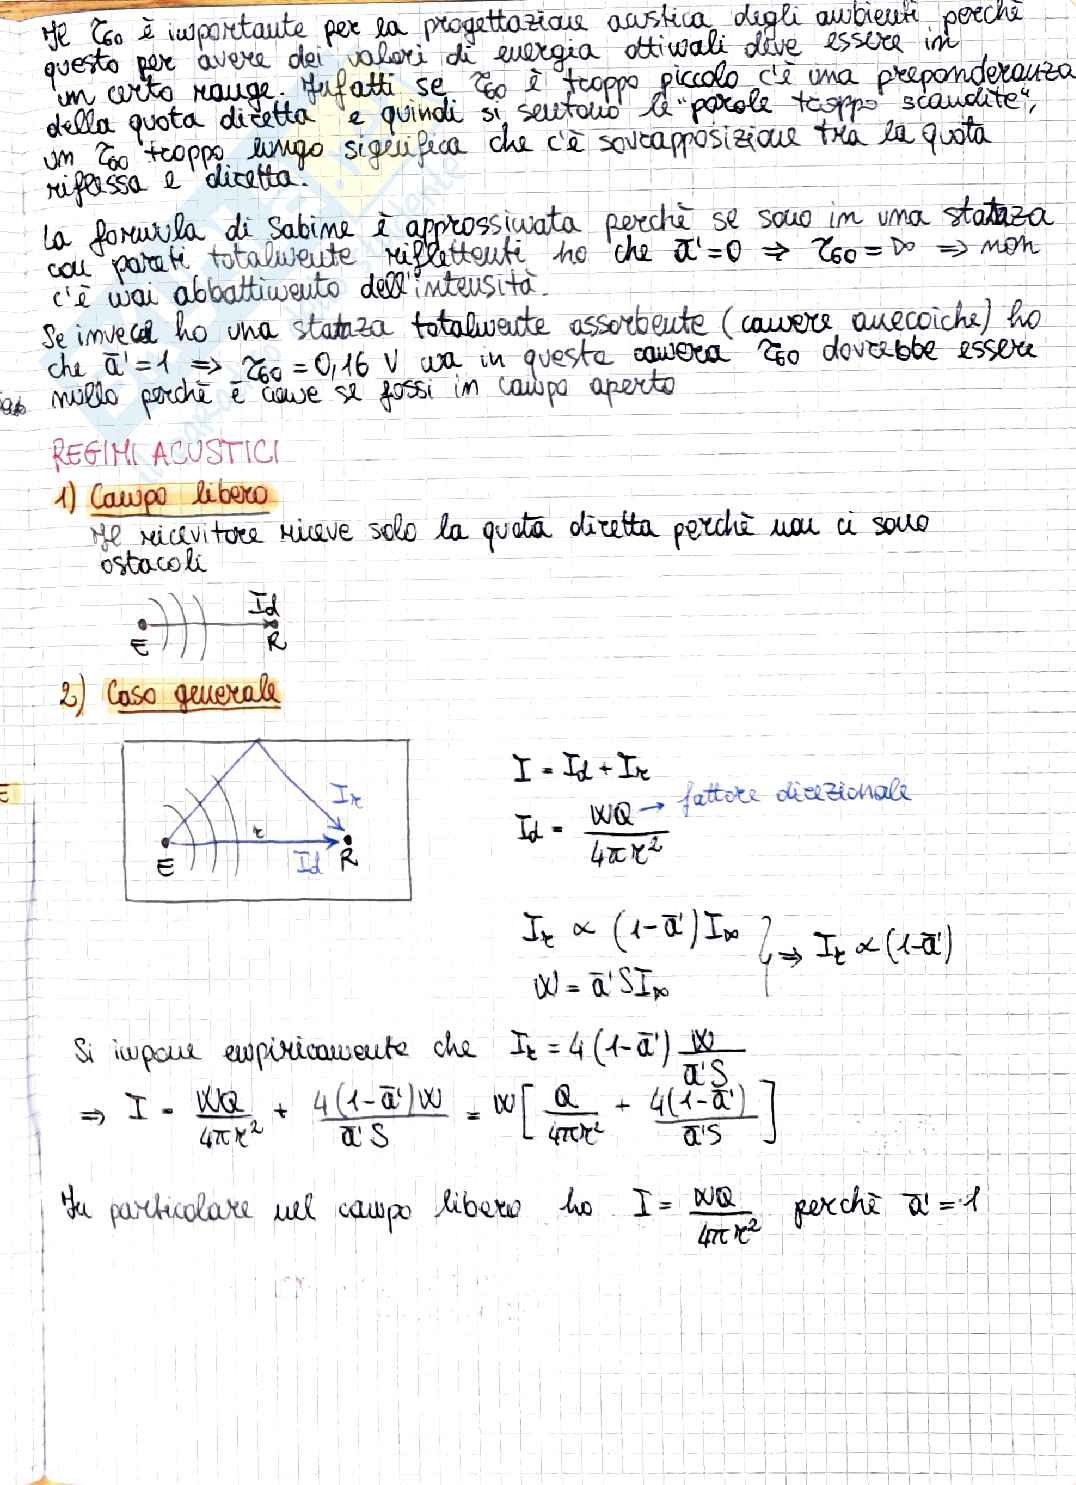 Il τ60 è importante per la progettazione acustica degli ambienti perchè
questo per avere dei valori di energia ottimali deve essere in
un certo range. Infatti se τ60 è troppo piccolo c'è una preponderanza
della quota diretta e quindi si sentono le "parole troppo scandite",
un τ60 troppo lungo significa che c'è sovrapposizione tra la quota
riflessa e diretta.
La formula di Sabine è approssimata perchè se sono in una stanza
con pareti totalmente riflettenti ho che ā'=0 ⇒ τ60=∞ ⇒ non
c'è mai abbattimento dell'intensità.
Se invece ho una stanza totalmente assorbente (camere anecoiche) ho
che ā'=1 ⇒ τ60=0,16 V ma in questa camera τ60 dovrebbe essere
nullo perchè è come se fossi in campo aperto
REGIMI ACUSTICI
1) Campo libero
Il ricevitore riceve solo la quota diretta perchè non ci sono
ostacoli
Id
E R
2) Caso generale
I = Id + Ir
Ir
Id = WQ/4πr² → fattore direzionale
r
E Id R
Ir ∝ (1-ā')I∞
W = ā'SI∞
⇒ Ir ∝ (1-ā')
Si impone empiricamente che Ir = 4(1-ā') W/ā'S
⇒ I = WQ/4πr² + 4(1-ā')W/ā'S = W[Q/4πr² + 4(1-ā')/ā'S]
In particolare nel campo libero ho I = WQ/4πr² perchè ā'=1